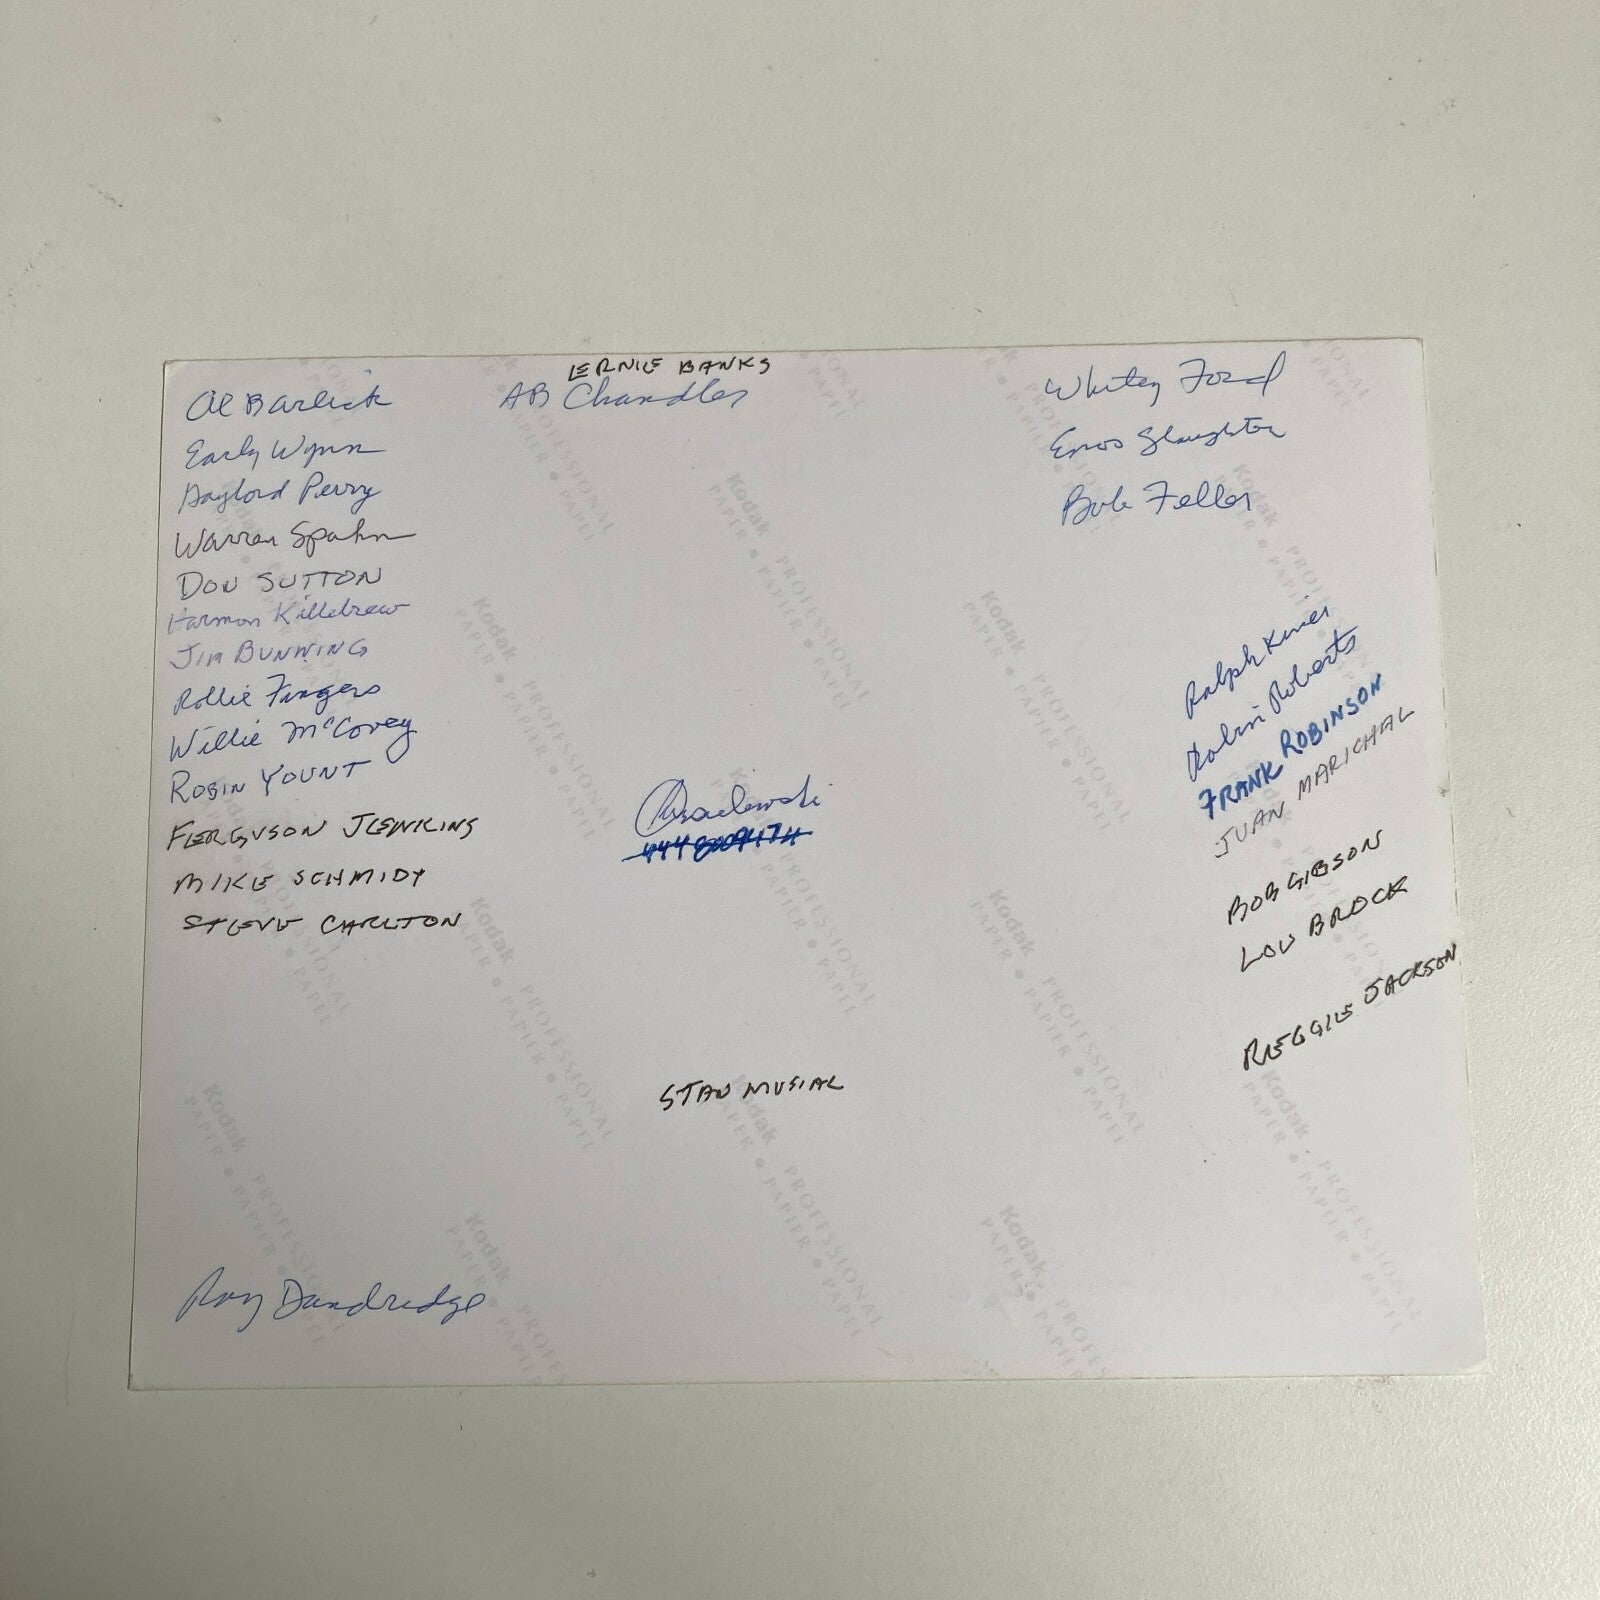 ERNIE BANKS
AB Chandler
Al Barlick
Early Wynn
Gaylord Perry
Warren Spahn
DON SUTTON
Harmon Killebrew
JIM BUNNING
Rollie Fingers
Willie McCovey
ROBIN YOUNT
FERGUSON JENKINS
MIKE SCHMIDT
STEVE CARLTON
Whitey Ford
Enos Slaughter
Bob Feller
Ralph Kiner
Robin Roberts
FRANK ROBINSON
JUAN MARICHAL
BOB GIBSON
LOU BROCK
REGGIE JACKSON
STAN MUSIAL
Ray Dandridge
Kodak
PROFESSIONAL
PAPER • PAPIER